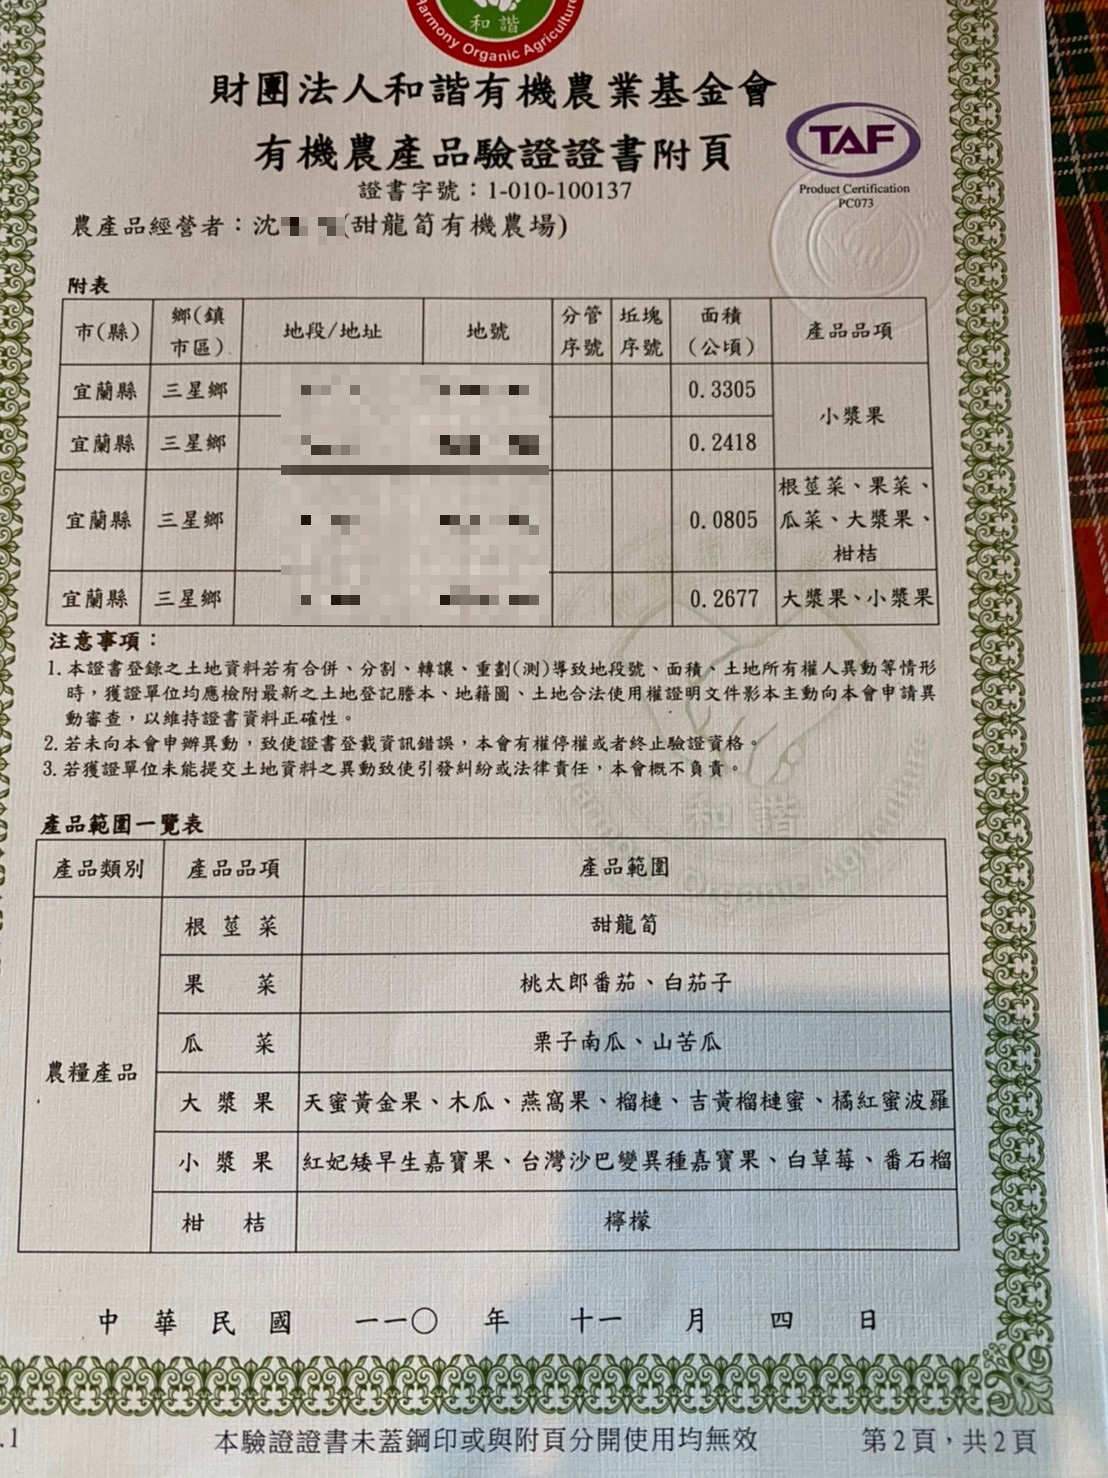 和諧
Harmony Organic Agriculture
財團法人和諧有機農業基金會
有機農產品驗證證書附頁
TAF
Product Certification
PC073
證書字號：1-010-100137
農產品經營者：沈 (甜龍筍有機農場)
附表
市(縣) 鄉(鎮市區) 地段/地址 地號 分管序號 坵塊序號 面積(公頃) 產品品項
宜蘭縣 三星鄉 0.3305 小漿果
宜蘭縣 三星鄉 0.2418
宜蘭縣 三星鄉 0.0805 根莖菜、果菜、瓜菜、大漿果、柑桔
宜蘭縣 三星鄉 0.2677 大漿果、小漿果
注意事項：
1. 本證書登錄之土地資料若有合併、分割、轉讓、重劃(測)導致地段號、面積、土地所有權人異動等情形
時，獲證單位均應檢附最新之土地登記謄本、地籍圖、土地合法使用權證明文件影本主動向本會申請異
動審查，以維持證書資料正確性。
2. 若未向本會申辦異動，致使證書登載資訊錯誤，本會有權停權或者終止驗證資格。
3. 若獲證單位未能提交土地資料之異動致使引發糾紛或法律責任，本會概不負責。
和諧
產品範圍一覽表
產品類別 產品品項 產品範圍
農糧產品
根莖菜 甜龍筍
果菜 桃太郎番茄、白茄子
瓜菜 栗子南瓜、山苦瓜
大漿果 天蜜黃金果、木瓜、燕窩果、榴槤、吉黃榴槤蜜、橘紅蜜波羅
小漿果 紅妃矮早生嘉寶果、台灣沙巴變異種嘉寶果、白草莓、番石榴
柑桔 檸檬
中華民國 一一〇 年 十一 月 四 日
.1 本驗證證書未蓋鋼印或與附頁分開使用均無效 第2頁，共2頁